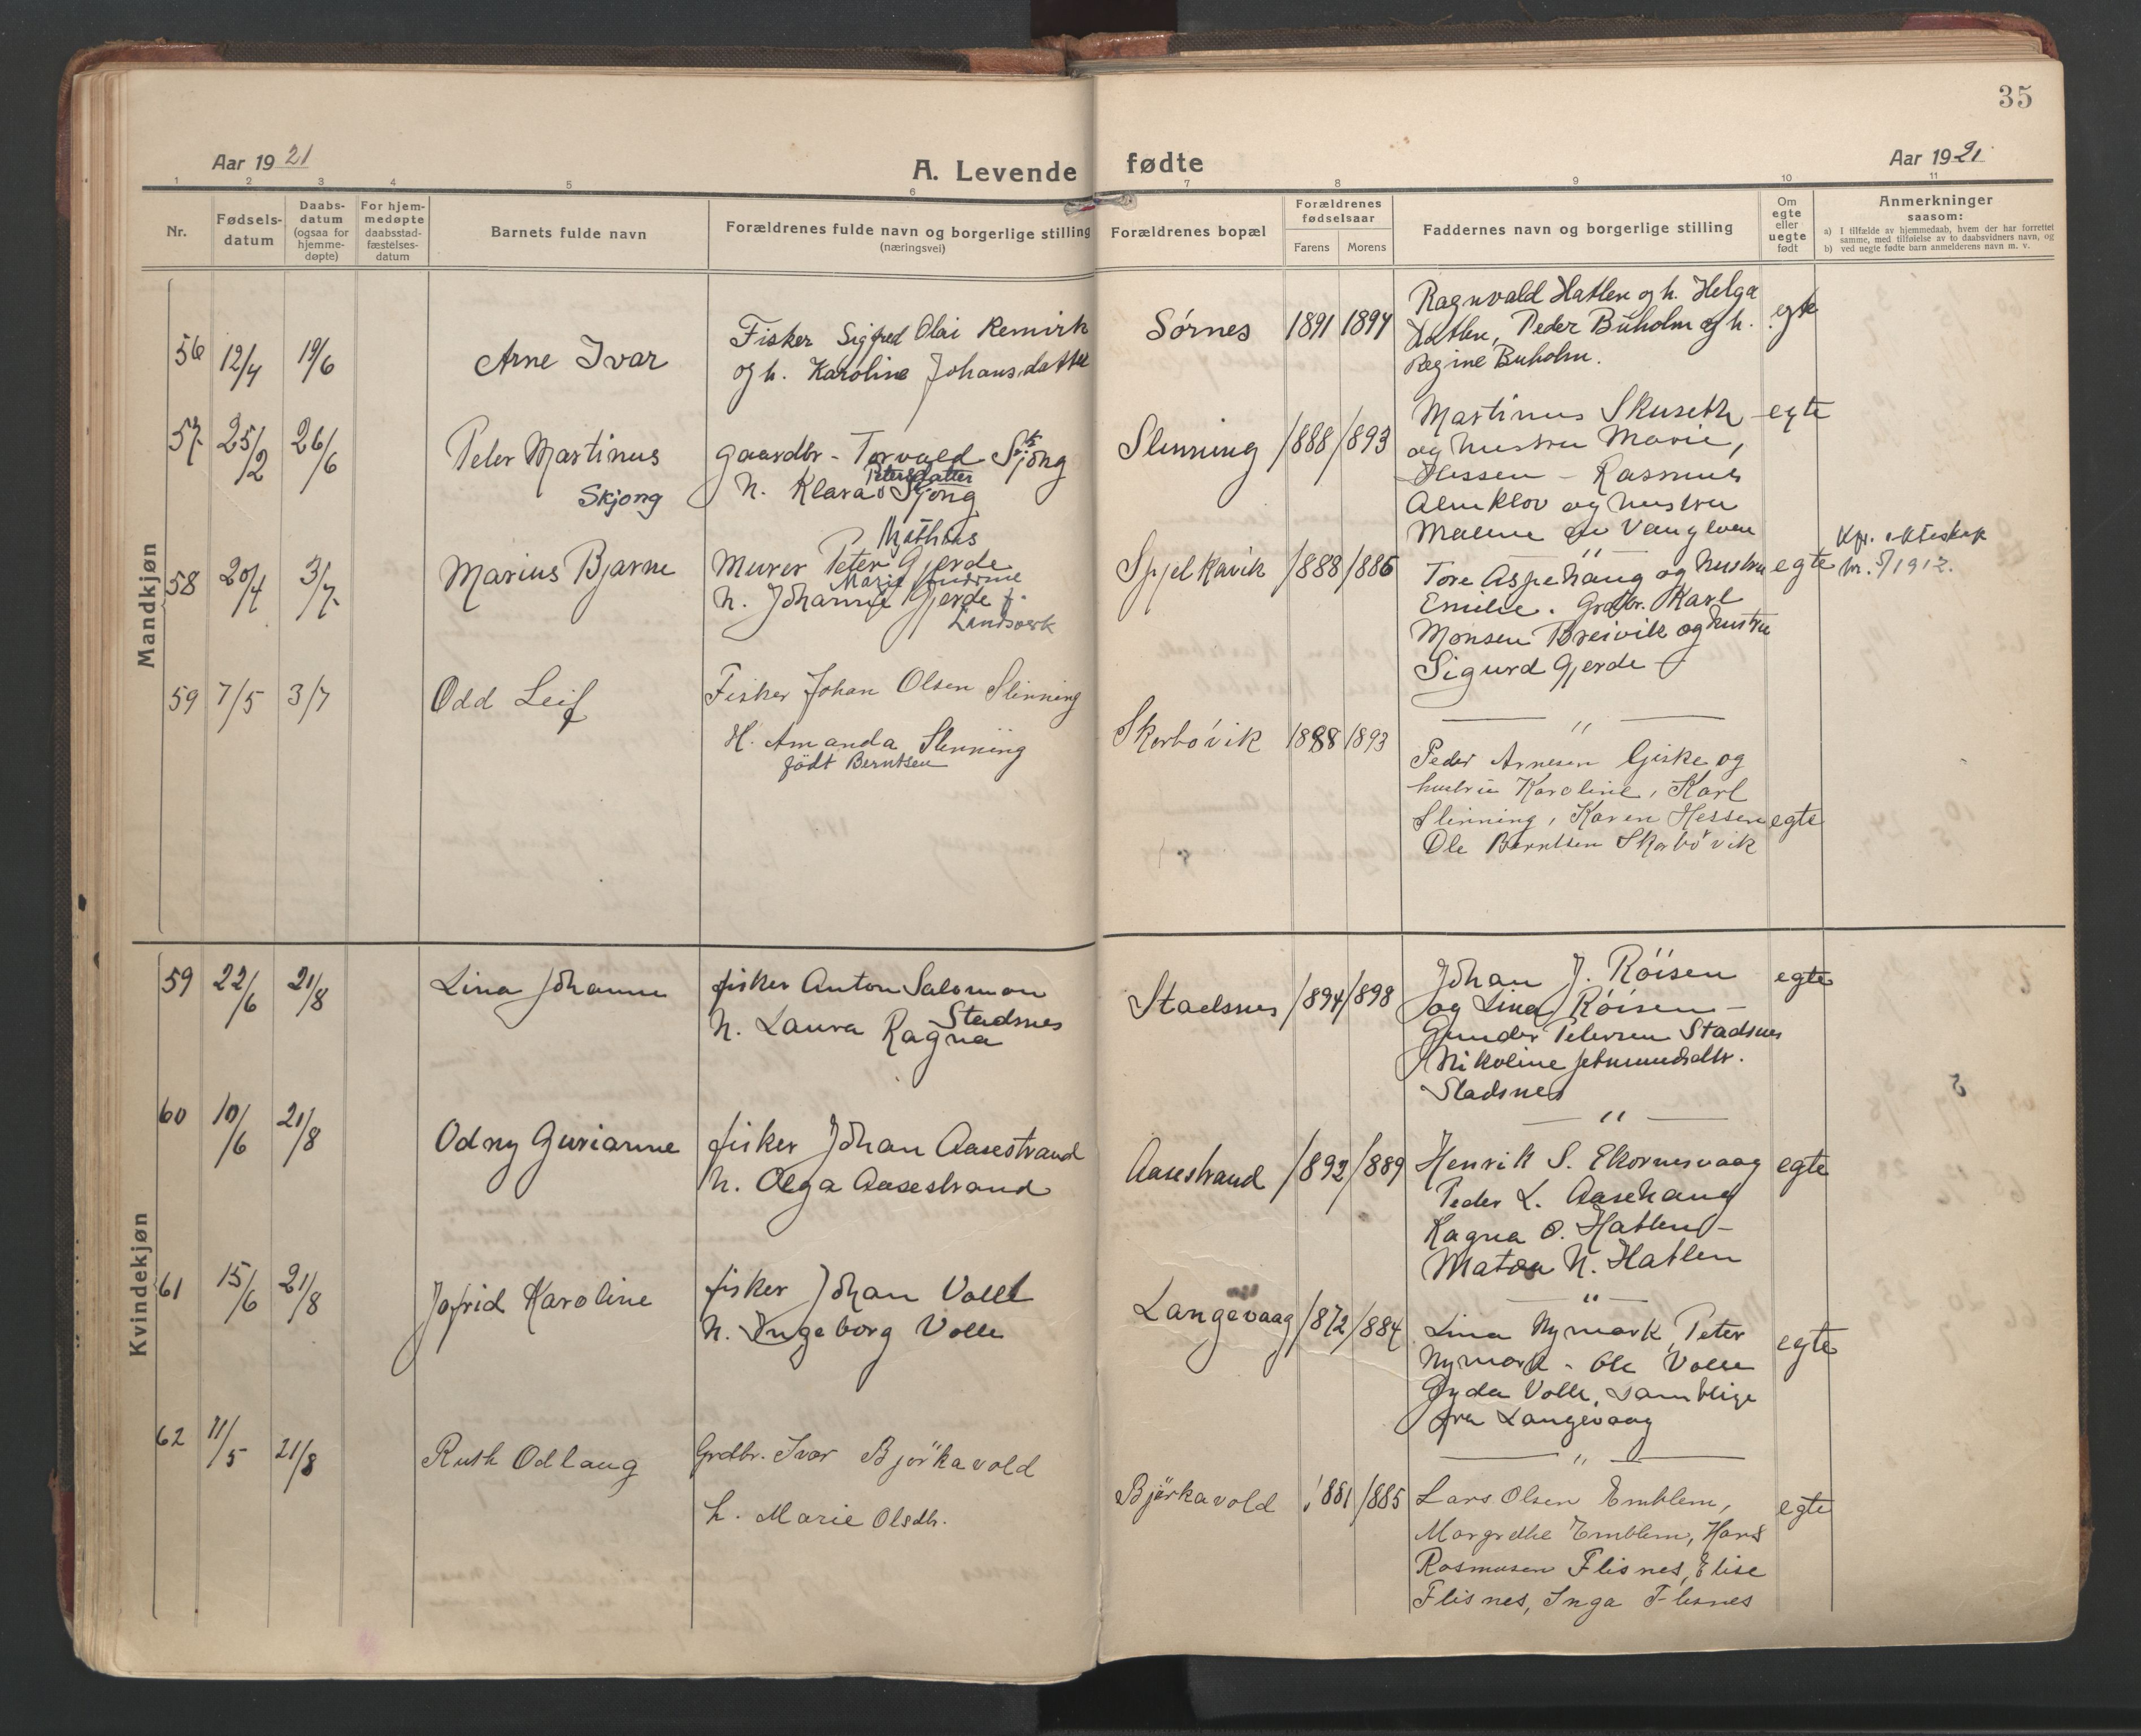 35
Aar 1921
A. Levende fødte
Aar 1921
1 2 3 4 5 6 7 8 9 10 11
Nr.
Fødsels-
datum
Daabs-
datum
(ogsaa for
hjemme-
døpte)
For hjem-
medøpte
daabsstad-
fæstelses-
datum
Barnets fulde navn
Forældrenes fulde navn og borgerlige stilling
(næringsvei)
Forældrenes bopæl
Forældrenes
fødselsaar
Farens Morens
Faddernes navn og borgerlige stilling
Om
egte
eller
uegte
født
Anmerkninger
saasom:
a) I tilfælde av hjemmedaab, hvem der har forrettet
samme, med tilføielse av to daabsvidners navn, og
b) ved uegte fødte barn anmelderens navn m. v.
Mandkjøn
56 12/4 19/6 Arne Ivar
Fisker Sigfred Olai Remirk
og h. Karoline Johansdatter
Sörnes 1891 1894
Ragnvald Hatlen og h. Helga
Hatlen, Peder Buholm og h.
Regine Buholm.
egte
57 25/2 26/6 Peter Martinus
Skjong
Gaardbr - Torvald Skjong
Petersdatter
h. Klara Skjong
Slinning 1888 1893
Martinus Skuseth
og hustru Marie,
Hessen - Rasmus
Almklov og hustru
Malene av Vanglven
egte
58 20/4 3/7 Marius Bjarne
Mathias
Murer Peter Gjerde
Marie
h. Johanne Gjerde f.
Landsverk
Spjelkavik 1888 1886
"
Tore Aspehaug og hustru
Emilie. Grdbr. Karl
Monsen Breivik og hustru
Sigurd Gjerde
egte
Kfr. ekteskap
nr. 5/1912.
59 7/5 3/7 Odd Leif
Fisker Johan Olsen Slinning
H. Amanda Slinning
födt Berntsen
Skorbövik 1888 1893
"
Peder Arnesen Giske og
hustru Karoline, Karl
Slinning, Karen Hessen
Ole Berntsen Skorbövik
egte
Kvindekjøn
59 22/6 21/8 Lina Johanne
fisker Anton Salomon
Stadsnes
h. Laura Ragna
Stadsnes 1894 1898
Johan J. Röisen
og Lina Röisen -
Gunder Petersen Stadsnes
Nikoline
Stadsnes
egte
60 10/6 21/8 Odny Gurianne
fisker Johan Aasestrand
h. Olga Aasestrand
Aasestrand 1892 1889
"
Henrik S. Ekornesvaag
Peder L. Aasehaug
Ragna O. Hatlen -
Matea N. Hatlen
egte
61 15/6 21/8 Jofrid Karoline
fisker Johan Volle
h. Ingeborg Volle
Langevaag 1872 1884
"
Lina Nymark, Peter
Nymark - Ole Volle
Gyda Volle, samtlige
fra Langevaag
egte
62 11/5 21/8 Ruth Odlaug
Grdbr. Ivar Björkavold
h. Marie Olsdtr.
Björkavold 1881 1885
"
Lars Olsen Emblem,
Margrethe Emblem, Hans
Rasmusen Flisnes, Elise
Flisnes, Inga Flisnes
egte